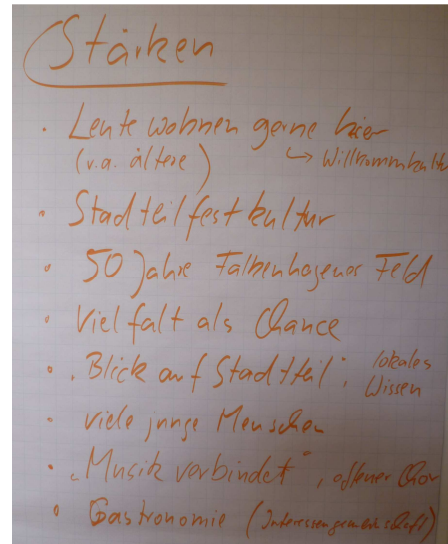 Stärken
• Leute wohnen gerne hier
(v.a. ältere) ↳ Willkommkultu
• Stadtteilfestkultur
• 50 Jahre Falkenhagener Feld
• Vielfalt als Chance
• „Blick auf Stadtteil“, lokales
Wissen
• viele junge Menschen
• „Musik verbindet“, offener Chor
• Gastronomie (Interessengemeinschaft)